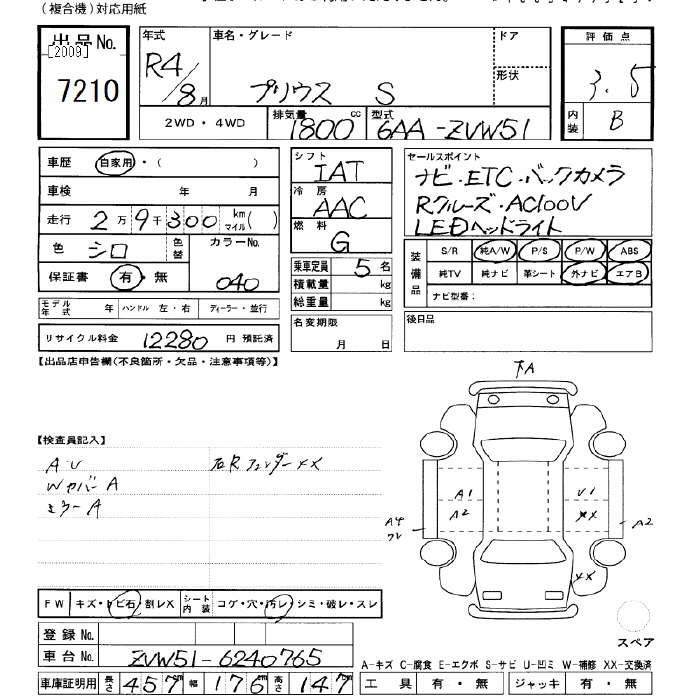 (複合機)対応用紙
出品No.
[2009]
7210
年式
R4/8月
車名・グレード
プリウス S
ドア
形状
評価点
3.5
内装
B
2WD・4WD
排気量
1800cc
型式
6AA-ZVW51
車歴
自家用・( )
車検 年 月
走行 2万9千300 km マイル( )
色 シロ 色替 カラーNo.
040
保証書 有・無
モデル年式 年 ハンドル 左・右 ディーラー・並行
リサイクル料金 12280 円 預託済
シフト
IAT
冷房
AAC
燃料
G
乗車定員 5名
積載量 kg
総重量 kg
名変期限
月 日
セールスポイント
ナビ・ETC・バックカメラ
Rクルーズ・AC100V
LEDヘッドライト
装備品
S/R 純A/W P/S P/W ABS
純TV 純ナビ 革シート 外ナビ エアB
ナビ型番:
後日品
【出品店申告欄(不良箇所・欠品・注意事項等)】
【検査員記入】
A・U
Wカバー A
ミラーA
右Rフェンダー XX
下A
A1
A2
U1
XX
A4
A2
XX
FW キズ・トビ石・割レX シート内装 コゲ・穴・汚レ・シミ・破レ・スレ
登録No.
車台No. ZVW51-6240765
車庫証明用 長さ 457cm 幅 176cm 高さ 147cm
スペア
A-キズ C-腐食 E-エクボ S-サビ U-凹ミ W-補修 XX-交換済
工具 有・無 ジャッキ 有・無